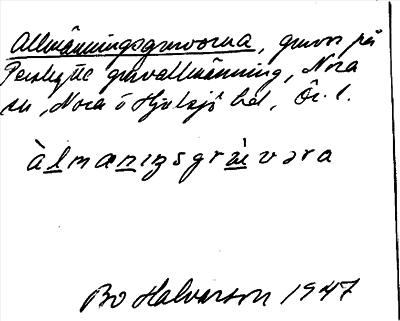 Allmänningsgruvorna, gruvor på
Pershytte gruvallmänning, Nora
sn, Nora o Hjulsjö bd, Ör. l.
àlmænıŋsgrʉ̀vəra
Bo Halvarson 1947